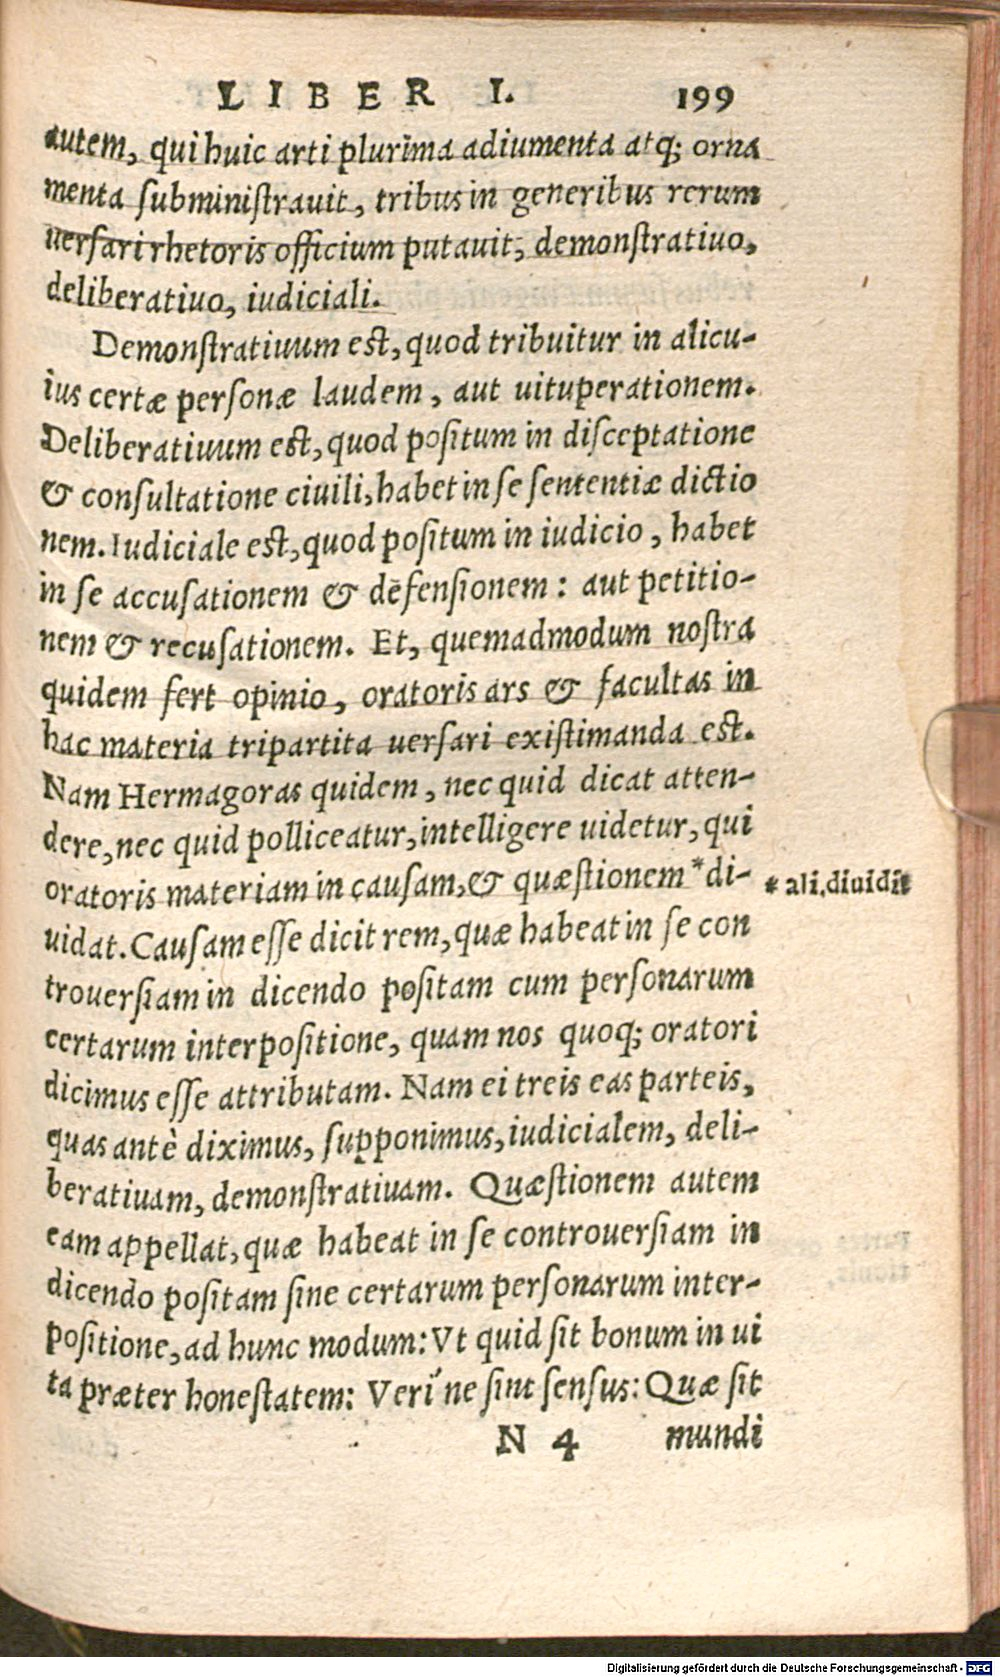 LIBER I. 199
autem, qui huic arti plurima adiumenta atq; orna
menta subministrauit, tribus in generibus rerum
uersari rhetoris officium putauit, demonstratiuo,
deliberatiuo, iudiciali.
Demonstratiuum est, quod tribuitur in alicu-
ius certæ personæ laudem, aut uituperationem.
Deliberatiuum est, quod positum in disceptatione
& consultatione ciuili, habet in se sententiæ dictio
nem. Iudiciale est, quod positum in iudicio, habet
in se accusationem & defensionem: aut petitio-
nem & recusationem. Et, quemadmodum nostra
quidem fert opinio, oratoris ars & facultas in
hac materia tripartita uersari existimanda est.
Nam Hermagoras quidem, nec quid dicat atten-
dere, nec quid polliceatur, intelligere uidetur, qui
oratoris materiam in causam, & quæstionem *di-
* ali. diuidit
uidat. Causam esse dicit rem, quæ habeat in se con
trouersiam in dicendo positam cum personarum
certarum interpositione, quam nos quoq; oratori
dicimus esse attributam. Nam ei treis eas parteis,
quas antè diximus, supponimus, iudicialem, deli-
beratiuam, demonstratiuam. Quæstionem autem
eam appellat, quæ habeat in se controuersiam in
dicendo positam sine certarum personarum inter-
positione, ad hunc modum: Vt quid sit bonum in ui
ta præter honestatem: Veri'ne sint sensus: Quæ sit
N 4 mundi
Digitalisierung gefördert durch die Deutsche Forschungsgemeinschaft - DFG